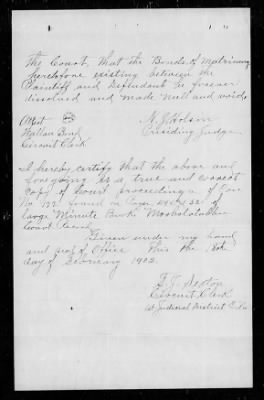 the Court, that the Bonds of Matrimony
heretofore existing between the
Plaintiff and Defendant be forever
dissolved and made null and void.
Attest
N. J. Holson
Presiding Judge
Circuit Clerk
I hereby certify that the above and
foregoing is a true and correct
copy of Court proceedings of Case
No 122 found in Page
large Minute Book
Court Record.
Given under my hand
and seal of Office this the
day of February 1902.
Circuit Clerk
Judicial District